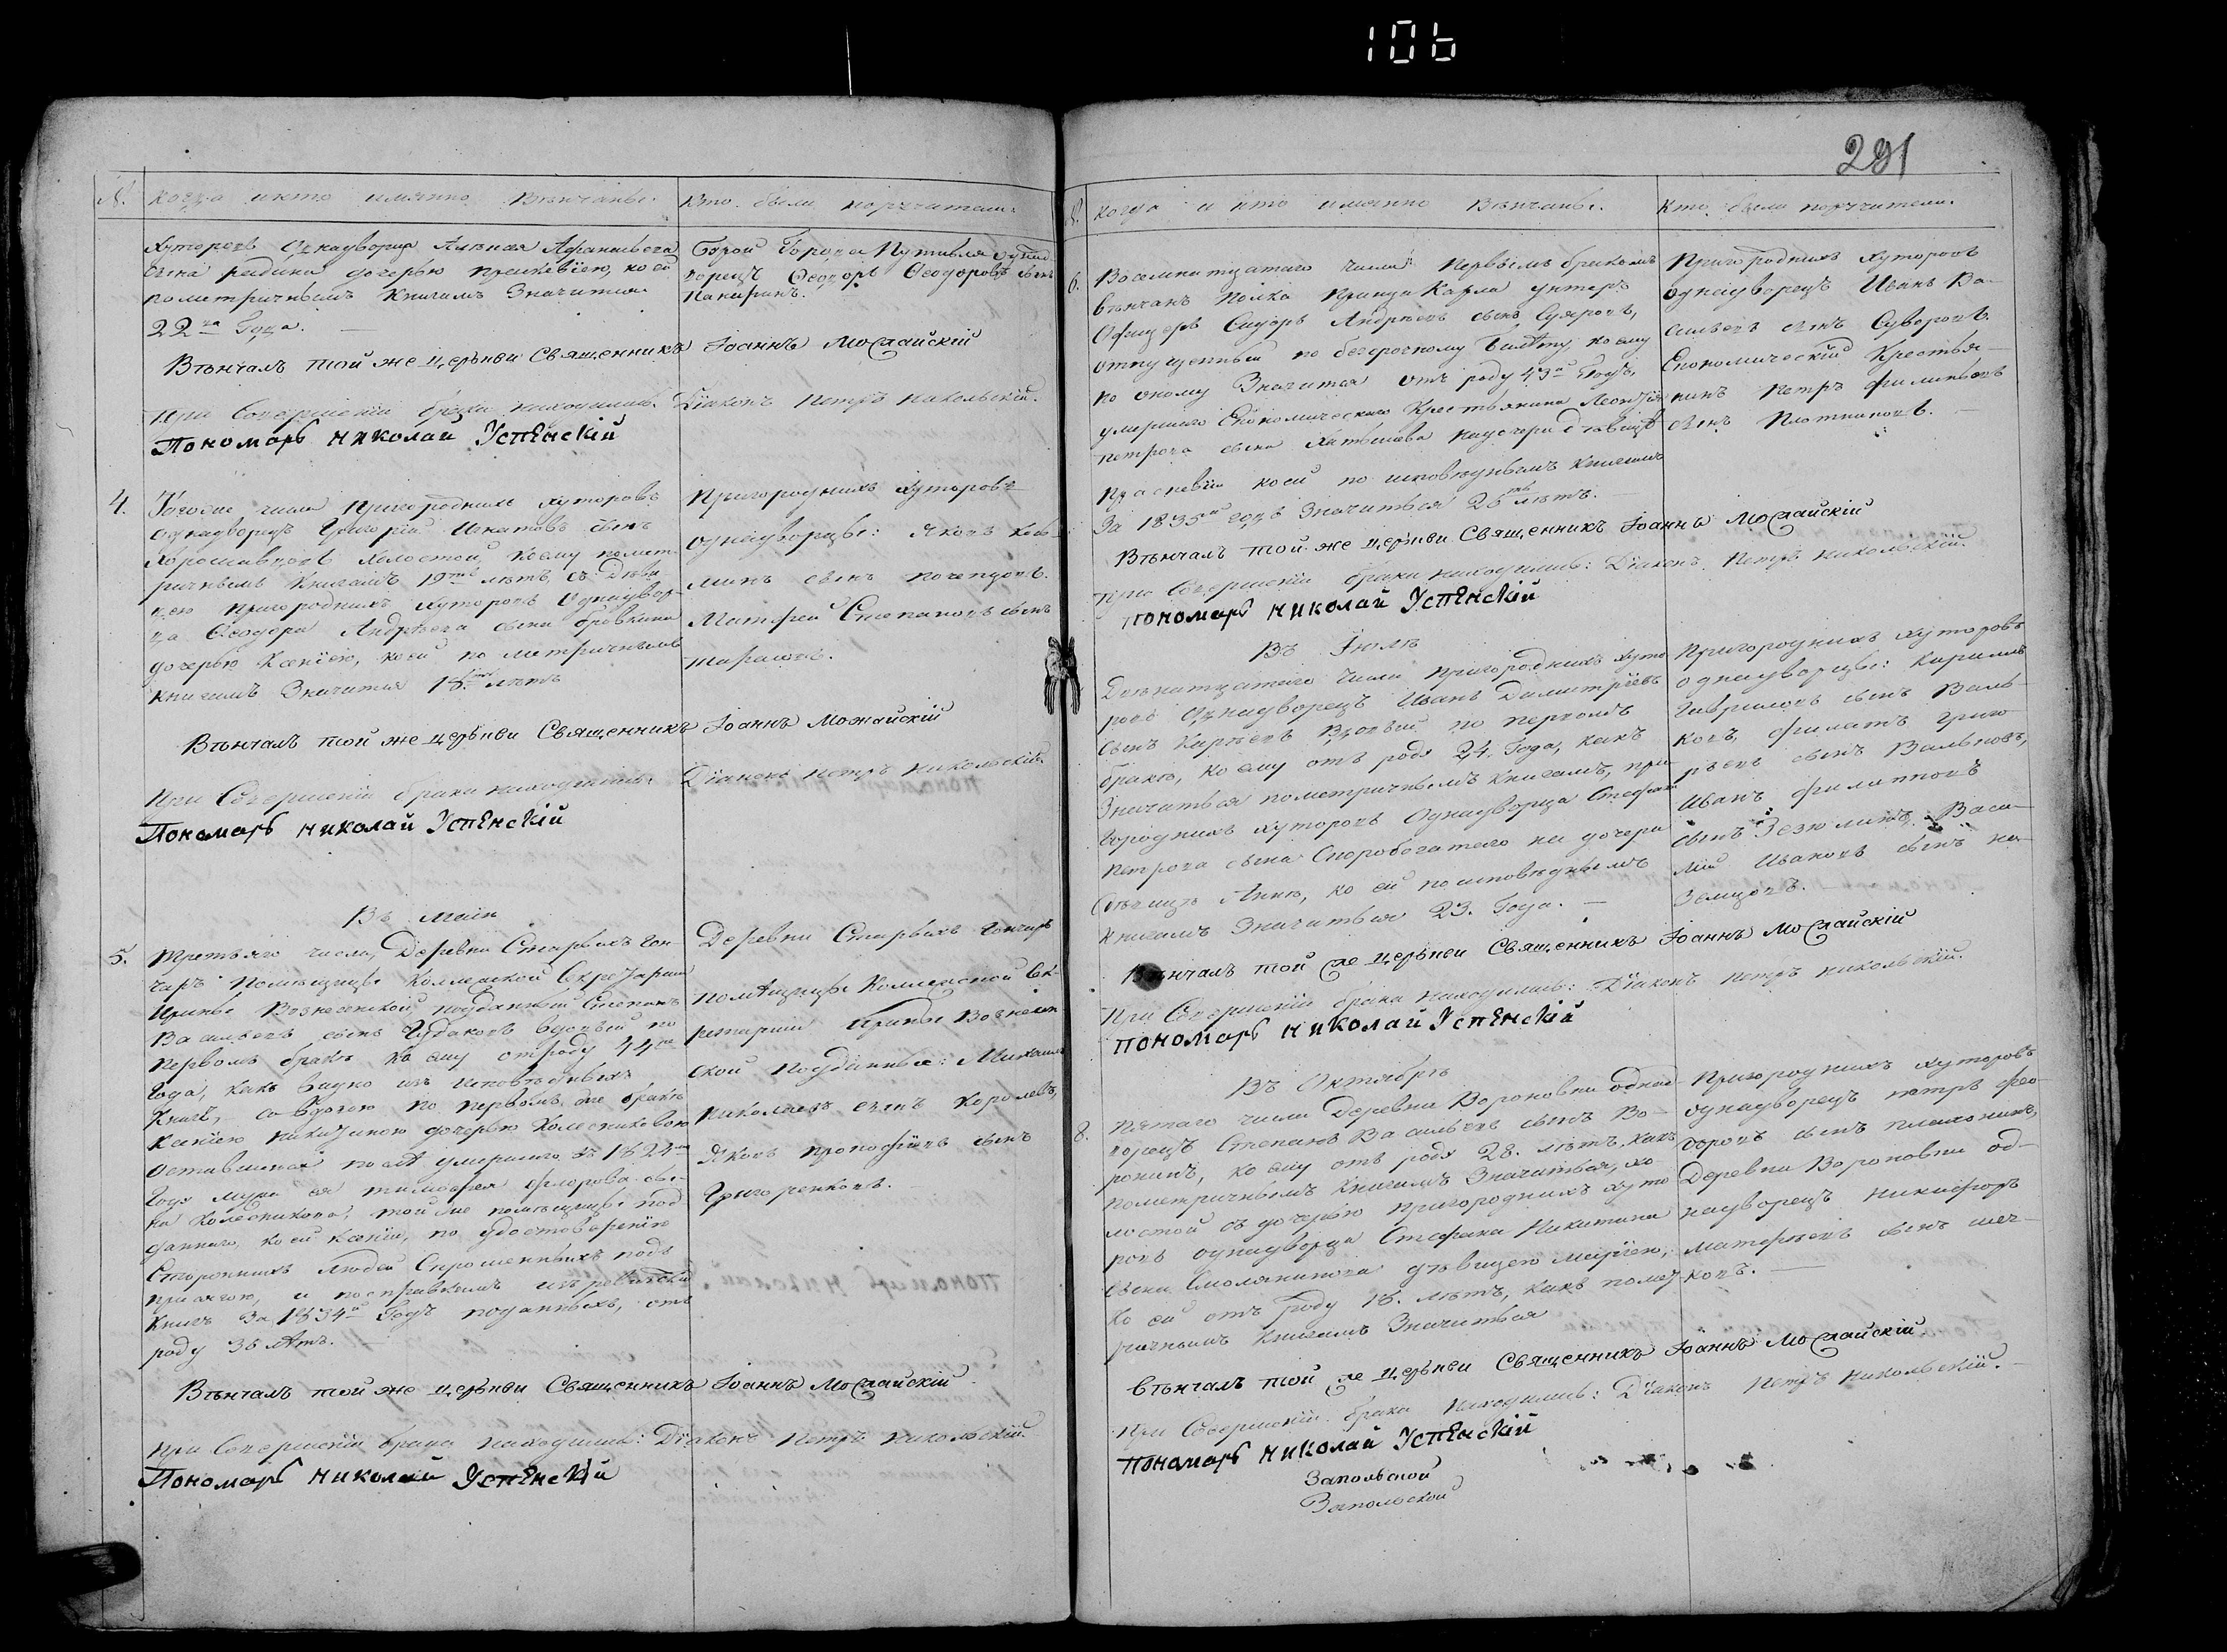 106
291
№. когда и кто имянно Вѣнчаны. Кто были поручители.
Хуторовъ Однодворца Алексѣя Афанасьева
сына дочерью коей
по метричнымъ Книгамъ Значится
22ва Года. —
Второй Города Путивля
ворецъ Ѳеодоръ Ѳеодоровъ сынъ
Вѣнчалъ той же церкви Священникъ ІоаннъМожайскій
При Совершеніи брака находились: Діаконъ Петръ Никольскій.
Пономарь Николай Успенскій
4. Тогоже числа Пригородныхъ Хуторовъ
Однодворецъ Григорій Игнатовъ сынъ
холостой, коему по мет-
ричнымъ Книгамъ 19ть лѣтъ, съ Дѣви-
цею Пригородныхъ Хуторовъ Однодвор-
ца Ѳеодора Андрѣева сына Бровкина
дочерью Ксеніею, коей по метричнымъ
книгамъ Значится 18 лѣтъ
Пригородныхъ Хуторовъ
однодворцы: Яковъ
сынъ
Матфей Степановъ сынъ
Вѣнчалъ той же церкви Священникъ Іоаннъ Можайскій
При Совершеніи брака находились: Діаконъ Петръ Никольскій.
Пономарь Николай Успенскій
Въ Маіи
5. Третьяго числа, Деревни Старыхъ Гон-
чаръ Помѣщицы Коллежской Секретарши
Ирины Вознесенской, подданный Степанъ
Васильевъ сынъ Чудаковъ вдовый по
первомъ бракѣ коему отроду 44ре
Года, какъ видно изъ исповѣдныхъ
Книгъ, — со вдовою по первомъ же бракѣ
Ксеніею Никитиною дочерью Колесниковою
оставшеюся послѣ умершаго въ 1824мъ
году мужа ея Тимофея Флорова сы-
на Колесникова, той же помѣщицы под-
даннаго, коей Ксеніи, по удостовѣренію
Стороннихъ людей Спрошенныхъ подъ
присягою, и по справкамъ изъ ревизскихъ
Книгъ За 1834й Годъ поданныхъ, отъ
роду 35 лѣтъ.
Деревни Старыхъ Гончаръ
помѣщицы Коллежской Сек-
ретарши Ирины Вознесен
ской подданные: Михаилъ
Николаевъ сынъ Королевъ,
Яковъ Прокофіевъ сынъ
Григоренковъ.
Вѣнчалъ той же церкви Священникъ Іоаннъ Можайскій
При Совершеніи брака находились: Діаконъ Петръ Никольскій
Пономарь Николай Успенскій
№. когда и кто имянно Вѣнчаны. Кто были поручители.
6. Восемнатцатаго Числа Первымъ бракомъ
вѣнчанъ Полка Принца Карла унтеръ
Офицеръ Сидоръ Андрѣевъ сынъ
отпущенный по безсрочному билету, коему
по оному Значится отъ роду 43й Годъ,
умершаго Економическаго Крестьянина Леонтія
Петрова сына на дочери дѣвицѣ
коей по исповѣднымъ книгамъ
За 1835й годъ Значиться 25ть лѣтъ. —
Пригородныхъ Хуторовъ
однодворецъ Иванъ Ва-
сильевъ сынъ Суворовъ.
Економическій Крестья-
нинъ Петръ Филиповъ
сынъ Плотниковъ. —
Вѣнчалъ той же церкви Священникъ Іоаннъ Можайскій
При Совершеніи брака находились: Діаконъ Петръ Никольскій.
Пономарь Николай Успенскій
Въ Іюлѣ
числа Пригородныхъ Хуто
ровъ Однодворецъ Иванъ Димитріевъ
сынъ Карпѣевъ Вдовый по первомъ
бракѣ, коему отъ роду 24. Года, какъ
Значиться по метричнымъ Книгамъ, при
городныхъ хуторовъ Однодворца Стефана
Петрова сына Скоробогатаго на дочери
дѣвицѣ Аннѣ, коей по исповѣднымъ
книгамъ Значиться 23. Года. —
Пригородныхъ Хуторовъ
однодворцы: Кириллъ
Гавриловъ сынъ Валь-
ковъ, Филатъ Григо
рьевъ сынъ Вальковъ,
Иванъ Филипповъ
сынъ Зезюлинъ, Васи-
лій Ивановъ сынъ
Вѣнчалъ той же церкви Священникъ Іоаннъ Можайскій
При Совершеніи брака находились: Діаконъ Петръ Никольскій.
Пономарь Николай Успенскій
Въ Октябрѣ
8. Пятаго числа Деревни Вороновки однод-
ворецъ Степанъ Васильевъ сынъ Во-
ронинъ, коему отъ роду 28. лѣтъ, какъ
по метричнымъ Книгамъ Значиться, хо
лостой съ дочерью Пригородныхъ Хуто
ровъ однодворца Стефана Никитина
сына Смолянинова дѣвицею Маріею,
коей отъ роду 18. лѣтъ, какъ по мет-
ричнымъ Книгамъ Значиться
Пригородныхъ Хуторовъ
однодворецъ Петръ Фео
доровъ сынъ
Деревни Вороновки од-
нодворецъ Никифоръ
Матфѣевъ сынъ
Вѣнчалъ той же церкви Священникъ Іоаннъ Можайскій.
При Совершеніи брака находились: Діаконъ Петръ Никольскій. —
Пономарь Николай Успенскій
Запольской
Запольской